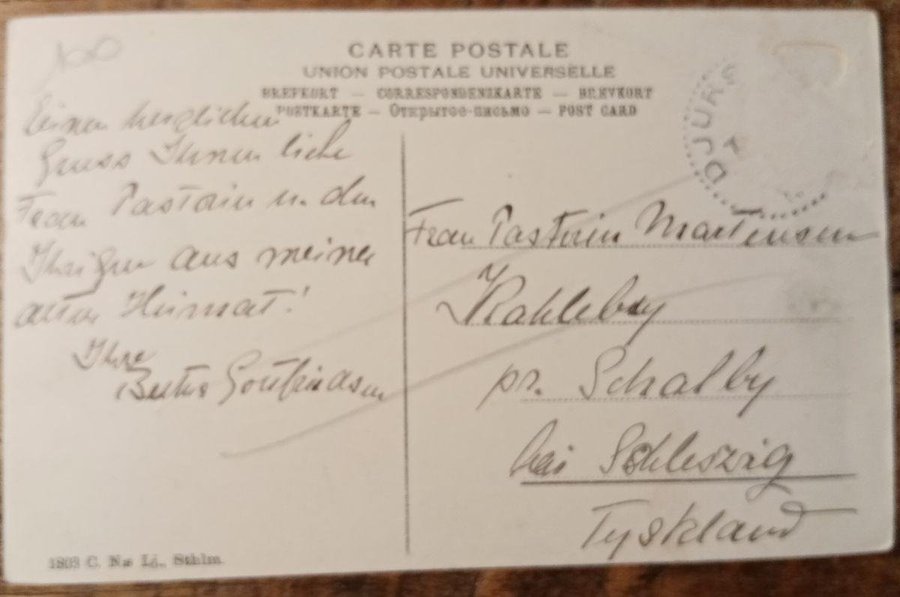 100
CARTE POSTALE
UNION POSTALE UNIVERSELLE
BREFKORT — CORRESPONDENZKARTE — BREVKORT
POSTKARTE — Открытое-письмо — POST CARD
DJURS
Einen herzlichen
Gruss Ihnen liebe
Frau Pastorin u. den
Ihrigen aus meiner
alten Heimat!
Ihre
Gottfriedsen
Frau Pastorin Martensen
Kahleby
pr. Schalby
bei Schleszig
Tyskland
1803 C. N:s Lj., Sthlm.